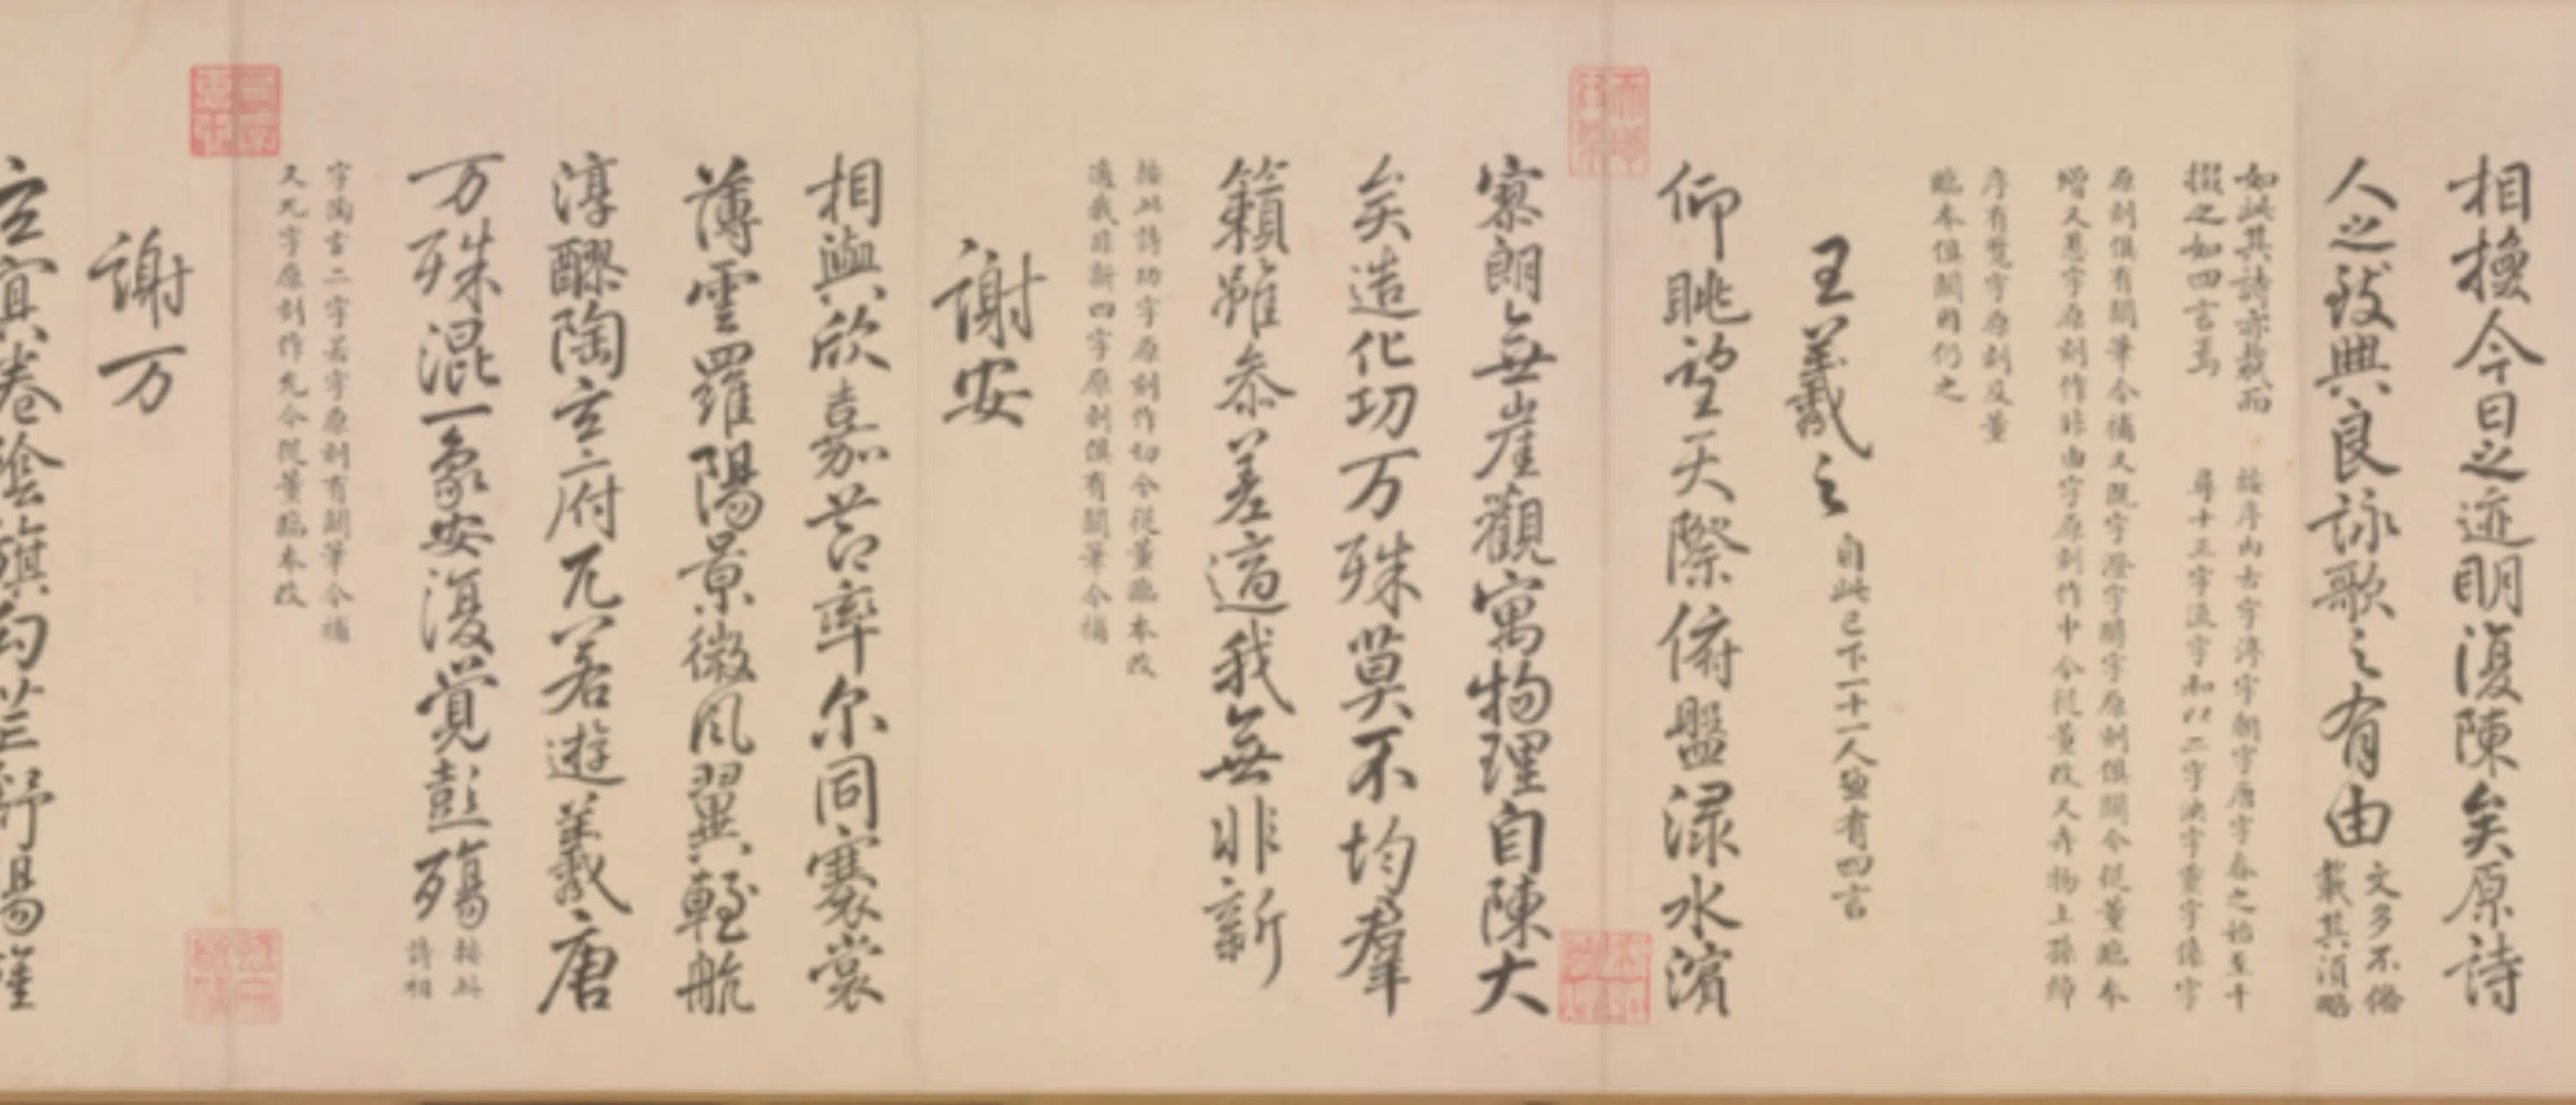 相捴今日之迹明復陳矣原詩
人之致興良詠歌之有由
文多不備
載其須略
如此其詩亦裁而
掇之如四言焉
按序內古字湍字朝字唐字春之始至十
尋十三字流字和以二字決字重字係字
原刻俱有闕筆今補又既字澄字醑字原刻俱闕今從董臨本
增又悉字原刻作非由字原刻作中今從董改又卉物上孫綽
序有覽字原刻及董
臨本俱闕因仍之
王羲之
自此已下一十一人並有四言
仰眺望天際俯盤渌水濱
寥朗無崖觀寓物理自陳大
矣造化功万殊莫不均羣
籟雖叅差適我無非新
按此詩功字原刻作切今從董臨本改
適我非新四字原刻俱有闕筆今補
謝安
相與欣嘉莭率尔同褰裳
薄雲羅陽景微風翼輕航
淳醪陶玄府兀若遊羲唐
万殊混一象安復覺彭殤
按此
詩相
字陶玄二字若字原刻有闕筆今補
又兀字原刻作先今從董臨本改
謝万
玄冥卷陰旗句芒舒陽旌